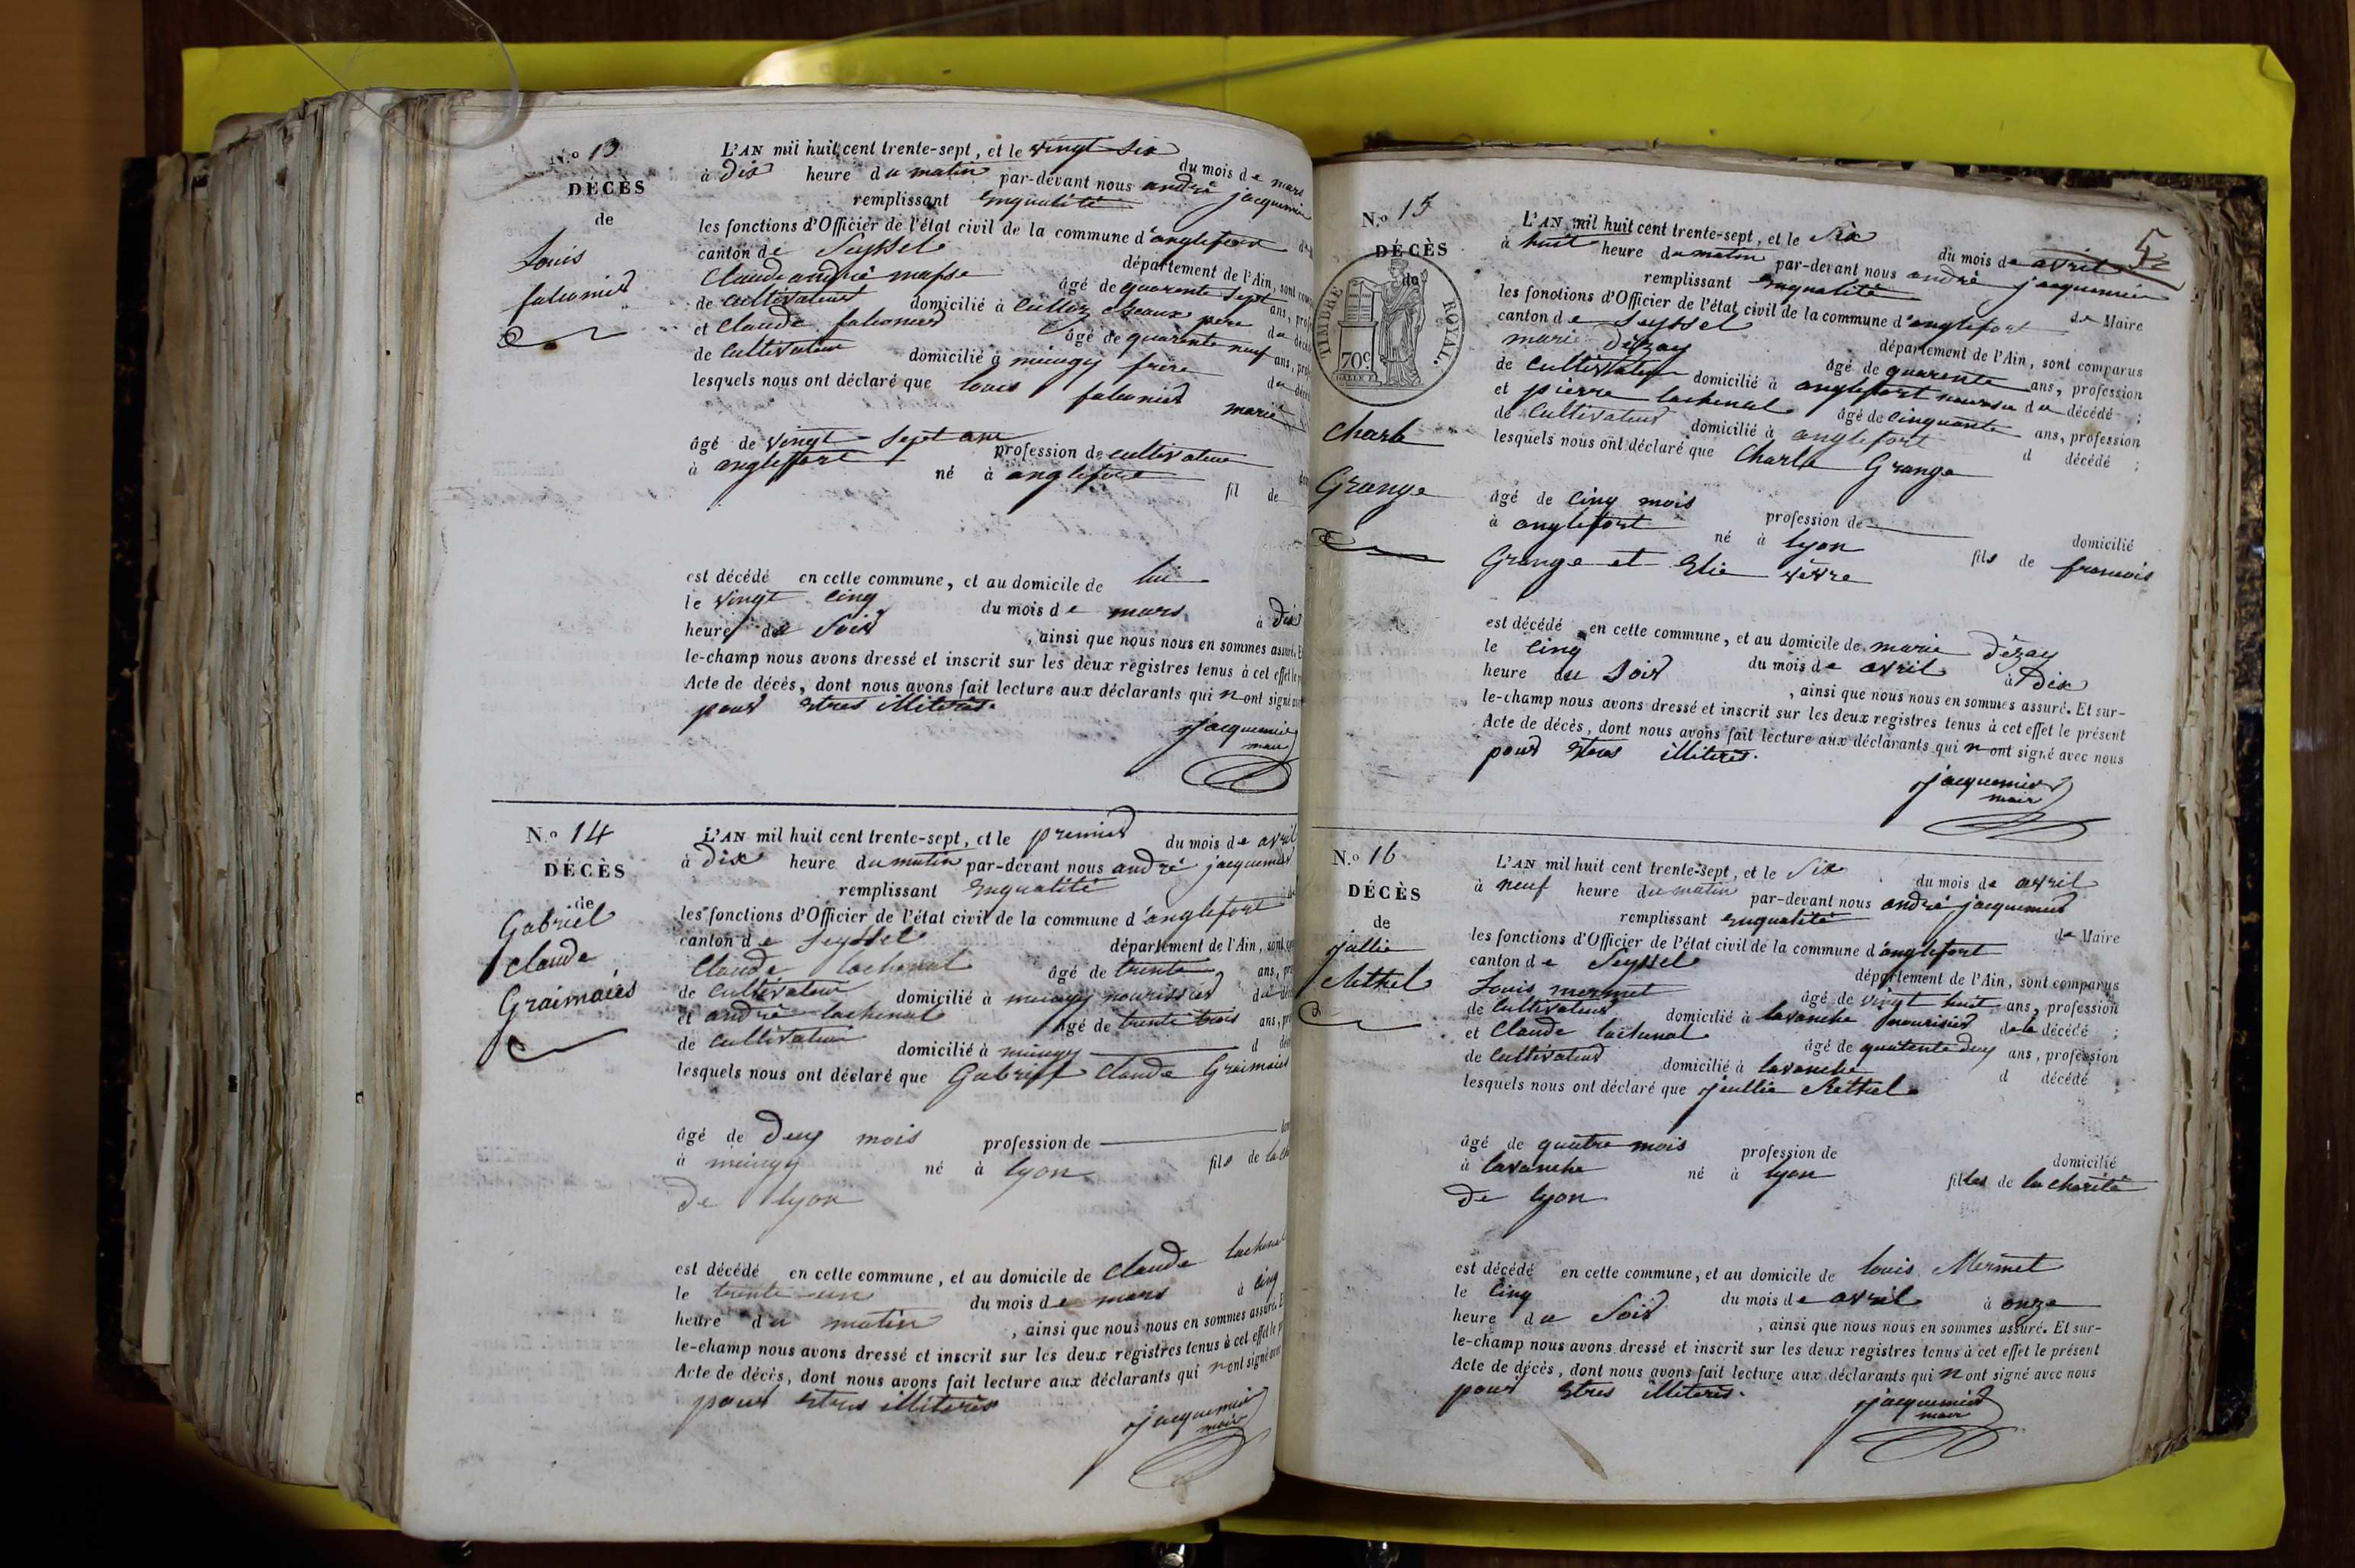 N.º 13
DÉCÈS
de
Louis
falconier
L'AN mil huit cent trente-sept, et le vingt six du mois de mars
à dix heure du matin par-devant nous andré jacquemier
remplissant enqualité
les fonctions d'Officier de l'état civil de la commune d'anglefort
canton de Seyssel département de l'Ain, sont
Claude andré masse âgé de quarente sept ans,
de cultivateur domicilié à culloz beaux pere du
et Claude falconier âgé de quarente neuf ans,
de cultivateur domicilié à mieugy frere du
lesquels nous ont déclaré que louis falconier marié
âgé de vingt sept ans profession de cultivateur
à anglefort né à anglefort fil de
est décédé en cette commune, et au domicile de lui
le vingt cinq du mois de mars à dix
heure du Soir, ainsi que nous nous en sommes assuré. E
le-champ nous avons dressé et inscrit sur les deux registres tenus à cet effet le
Acte de décès, dont nous avons fait lecture aux déclarants qui n'ont signé
pour Etres illiterés.
jacquemier
maire
N.º 14
DÉCÈS
de
Gabriel
Claude
Graimaiés
L'AN mil huit cent trente-sept, et le premier du mois de avril
à dix heure du matin par-devant nous andré jacquemier
remplissant enqualité
les fonctions d'Officier de l'état civil de la commune d'anglefort
canton de Seyssel département de l'Ain, sont
Claude lachenal âgé de trente ans,
de cultivateur domicilié à mieugy nourissier du
et andré lachenal âgé de trente trois ans,
de cultivateur domicilié à mieugy d
lesquels nous ont déclaré que Gabriel Claude Graimaiés
âgé de deux mois profession de
à mieugy né à lyon fils de la
de lyon
est décédé en cette commune, et au domicile de Claude lachenal
le trente un du mois de mars à cinq
heure du matin, ainsi que nous nous en sommes assuré. E
le-champ nous avons dressé et inscrit sur les deux registres tenus à cet effet le
Acte de décès, dont nous avons fait lecture aux déclarants qui n'ont signé
pour Etres illiterés
jacquemier
maire
52
N.º 15
DÉCÈS
de
TIMBRE ROYAL.
70c
Charle
Grange
L'AN mil huit cent trente-sept, et le Six du mois de avril
à huit heure du matin par-devant nous andré jacquemier
remplissant enqualité de Maire
les fonctions d'Officier de l'état civil de la commune d'anglefort
canton de Seyssel département de l'Ain, sont comparus
marie Dézay âgé de quarente ans, profession
de cultivateur domicilié à anglefort du décédé ;
et pierre lachenal âgé de cinquante ans, profession
de Cultivateur domicilié à anglefort d décédé ;
lesquels nous ont déclaré que Charle Grange
âgé de cinq mois profession de domicilié
à anglefort né à lyon fils de francois
Grange et Elie
est décédé en cette commune, et au domicile de marie Dézay
le cinq du mois de avril à Dix
heure du Soir, ainsi que nous nous en sommes assuré. Et sur-
le-champ nous avons dressé et inscrit sur les deux registres tenus à cet effet le présent
Acte de décès, dont nous avons fait lecture aux déclarants qui n'ont signé avec nous
pour Etres illiterés.
jacquemier
maire
N.º 16
DÉCÈS
de
jullie
Rethel
L'AN mil huit cent trente-sept, et le Six du mois de avril
à neuf heure du matin par-devant nous andré jacquemier
remplissant enqualité de Maire
les fonctions d'Officier de l'état civil de la commune d'anglefort
canton de Seyssel département de l'Ain, sont comparus
Louis mermet âgé de vingt huit ans, profession
de Cultivateur domicilié à lavanche nourisier de la décédé ;
et Claude lachenal âgé de quatente deux ans, profession
de cultivateur domicilié à lavanche d décédé ;
lesquels nous ont déclaré que jeullie Rethel
âgé de quatre mois profession de domicilié
à lavanche né à lyon filles de la charité
de lyon
est décédé en cette commune, et au domicile de louis Mermet
le cinq du mois de avril à onze
heure du Soir, ainsi que nous nous en sommes assuré. Et sur-
le-champ nous avons dressé et inscrit sur les deux registres tenus à cet effet le présent
Acte de décès, dont nous avons fait lecture aux déclarants qui n'ont signé avec nous
pour Etres illiterés.
jacquemier
maire